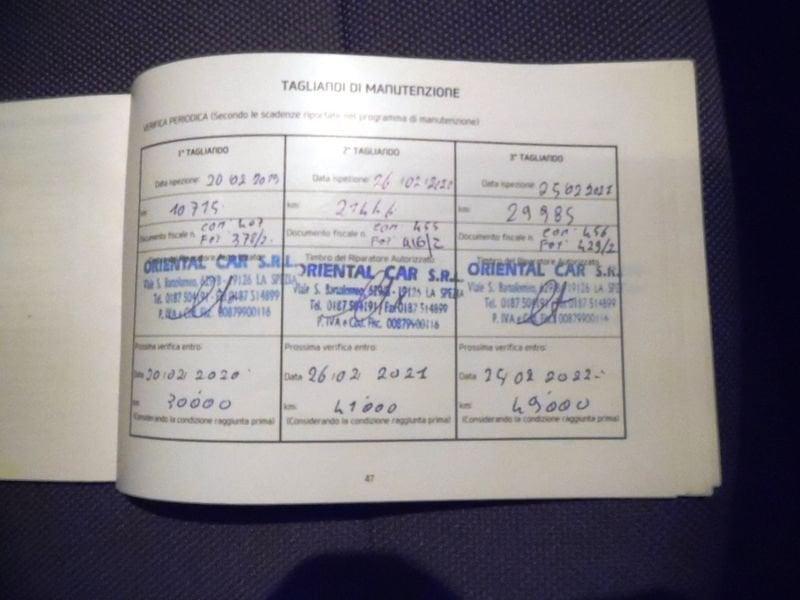 TAGLIANDI DI MANUTENZIONE
VERIFICA PERIODICA (Secondo le scadenze riportate nel programma di manutenzione)
1° TAGLIANDO
Data ispezione: 20 02 2019
km: 10715
Documento fiscale n. COM 407
FAT 378/2
Timbro del Riparatore Autorizzato:
ORIENTAL CAR S.R.L.
Viale S. Bartolomeo, 629/B - 19126 LA SPEZIA
Tel. 0187 504191 - Fax 0187 514899
P. IVA e Cod. Fisc. 00879900116
Prossima verifica entro:
Data 20/02/2020
km: 30000
(Considerando la condizione raggiunta prima)
2° TAGLIANDO
Data ispezione: 26/02/2020
km: 21446
Documento fiscale n. COM 455
FAT 416/2
Timbro del Riparatore Autorizzato:
ORIENTAL CAR S.R.L.
Viale S. Bartolomeo, 629/B - 19126 LA SPEZIA
Tel. 0187 504191 / Fax 0187 514899
P. IVA e Cod. Fisc. 00879900116
Prossima verifica entro:
Data 26/02/2021
km: 41000
(Considerando la condizione raggiunta prima)
3° TAGLIANDO
Data ispezione: 25 02 2021
km: 29985
Documento fiscale n. COM 456
FAT 429/2
Timbro del Riparatore Autorizzato:
ORIENTAL CAR S.R.L.
Viale S. Bartolomeo, 629/B - 19126 LA SPEZIA
Tel. 0187 504191 - Fax 0187 514899
P. IVA e Cod. Fisc. 00879900116
Prossima verifica entro:
Data 25 02 2022
km: 49000
(Considerando la condizione raggiunta prima)
47